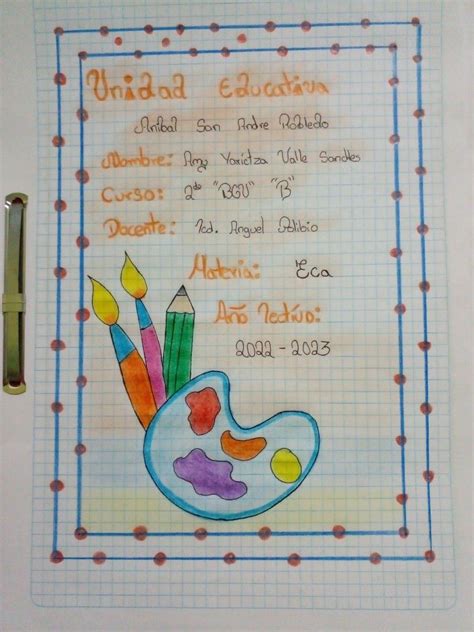 Unidad Educativa
Anibal San Andre Robledo
Nombre: Amy Yaritza Valle Sandles
Curso: 2do "BGU" "B"
Docente: Lcd. Anguel Polibio
Materia: Eca
Año Lectivo:
2022 - 2023